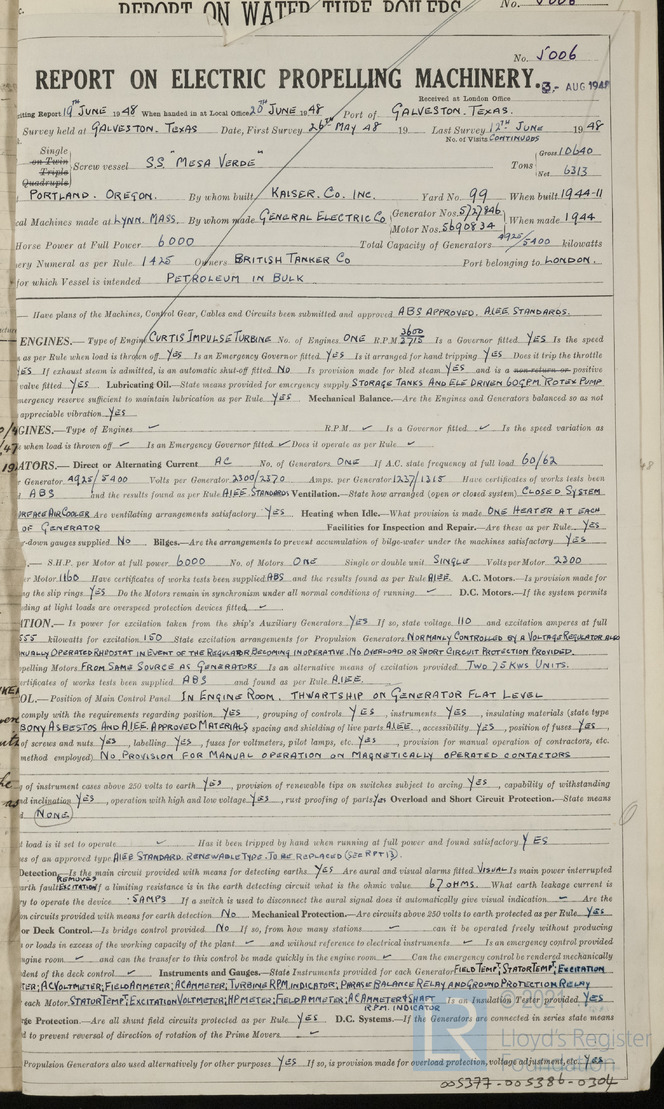 REPORT ON WATER TUBE BOILERS. No. 5006
No. 5006
REPORT ON ELECTRIC PROPELLING MACHINERY.
Received at London Office 3 - AUG 1948
iting Report 19TH JUNE 1948 When handed in at Local Office 20TH JUNE 1948 Port of GALVESTON. TEXAS.
Survey held at GALVESTON. TEXAS Date, First Survey 26TH MAY 48 19 Last Survey 12TH JUNE 1948
No. of Visits CONTINUOUS
Single
on Twin
Triple
Quadruple
Screw vessel S.S. "MESA VERDE" Tons Gross 10640
Net 6313
PORTLAND. OREGON. By whom built KAISER. CO. INC. Yard No. 99 When built 1944-11
cal Machines made at LYNN. MASS. By whom made GENERAL ELECTRIC CO Generator Nos. 5727846 When made 1944
Motor Nos. 5690834
Horse Power at Full Power 6000 Total Capacity of Generators 4925/5400 kilowatts
ery Numeral as per Rule 1425 Owners BRITISH TANKER CO Port belonging to LONDON.
for which Vessel is intended PETROLEUM IN BULK
Have plans of the Machines, Control Gear, Cables and Circuits been submitted and approved ABS APPROVED. AIEE STANDARDS.
ENGINES.— Type of Engine CURTIS IMPULSE TURBINE No. of Engines ONE R.P.M 3600/3715 Is a Governor fitted YES Is the speed
as per Rule when load is thrown off YES Is an Emergency Governor fitted YES Is it arranged for hand tripping YES Does it trip the throttle
YES If exhaust steam is admitted, is an automatic shut-off fitted NO Is provision made for bled steam YES and is a non-return or positive
valve fitted YES Lubricating Oil.—State means provided for emergency supply STORAGE TANKS AND ELE DRIVEN 60GPM ROTEX PUMP
mergency reserve sufficient to maintain lubrication as per Rule YES Mechanical Balance.—Are the Engines and Generators balanced so as not
appreciable vibration YES
GINES.—Type of Engines ✓ R.P.M. ✓ Is a Governor fitted ✓ Is the speed variation as
when load is thrown off ✓ Is an Emergency Governor fitted ✓ Does it operate as per Rule ✓
ATORS.— Direct or Alternating Current AC No. of Generators ONE If A.C. state frequency at full load 60/62
Generator 4925/5400 Volts per Generator 2300/2370 Amps. per Generator 1237/1315 Have certificates of works tests been
ABS and the results found as per Rule AIEE STANDARDS Ventilation.—State how arranged (open or closed system) CLOSED SYSTEM
SURFACE AIR COOLER Are ventilating arrangements satisfactory YES Heating when Idle.—What provision is made ONE HEATER AT EACH
OF GENERATOR Facilities for Inspection and Repair.—Are these as per Rule YES
r-down gauges supplied NO Bilges.—Are the arrangements to prevent accumulation of bilge-water under the machines satisfactory YES
.— S.H.P. per Motor at full power 6000 No. of Motors ONE Single or double unit SINGLE Volts per Motor 2300
er Motor 1160 Have certificates of works tests been supplied ABS and the results found as per Rule AIEE. A.C. Motors.—Is provision made for
ng the slip rings YES Do the Motors remain in synchronism under all normal conditions of running ✓ D.C. Motors.—If the system permits
ding at light loads are overspeed protection devices fitted, ✓
TION.—Is power for excitation taken from the ship's Auxiliary Generators YES If so, state voltage 110 and excitation amperes at full
555 kilowatts for excitation 150 State excitation arrangements for Propulsion Generators NORMALLY CONTROLLED BY A VOLTAGE REGULATOR ALSO
NUALLY OPERATED RHEOSTAT IN EVENT OF THE REGULATOR BECOMING INOPERATIVE. NO OVERLOAD OR SHORT CIRCUIT PROTECTION PROVIDED.
opelling Motors FROM SAME SOURCE AS GENERATORS Is an alternative means of excitation provided TWO 75 KWS UNITS.
ertificates of works tests been supplied ABS and found as per Rule AIEE.
OL.—Position of Main Control Panel IN ENGINE ROOM. THWARTSHIP ON GENERATOR FLAT LEVEL
comply with the requirements regarding position YES, grouping of controls YES, instruments YES, insulating materials (state type
BONY ASBESTOS AND AIEE APPROVED MATERIALS spacing and shielding of live parts AIEE, accessibility YES, position of fuses YES,
of screws and nuts YES, labelling YES, fuses for voltmeters, pilot lamps, etc. YES, provision for manual operation of contractors, etc.
method employed). NO PROVISION FOR MANUAL OPERATION ON MAGNETICALLY OPERATED CONTACTORS
g of instrument cases above 250 volts to earth YES, provision of renewable tips on switches subject to arcing YES, capability of withstanding
nd inclination YES, operation with high and low voltage YES, rust proofing of parts YES Overload and Short Circuit Protection.—State means
NONE
load is it set to operate ✓ Has it been tripped by hand when running at full power and found satisfactory YES
es of an approved type AIEE STANDARD. RENEWABLE TYPE. TO BE REPLACED (SEE RPT 13).
Detection.—Is the main circuit provided with means for detecting earths. YES Are aural and visual alarms fitted VISUAL Is main power interrupted
earth fault REMOVES EXCITATION If a limiting resistance is in the earth detecting circuit what is the ohmic value 67 OHMS. What earth leakage current is
ry to operate the device .5AMPS If a switch is used to disconnect the aural signal does it automatically give visual indication ✓ Are the
on circuits provided with means for earth detection NO Mechanical Protection.—Are circuits above 250 volts to earth protected as per Rule YES
or Deck Control.—Is bridge control provided NO If so, from how many stations ✓ can it be operated freely without producing
s or loads in excess of the working capacity of the plant ✓ and without reference to electrical instruments ✓ Is an emergency control provided
ngine room ✓ and can the transfer to this control be made quickly in the engine room ✓ Can the emergency control be rendered mechanically
dent of the deck control ✓ Instruments and Gauges.—State Instruments provided for each Generator FIELD TEMP; STATOR TEMP; EXCITATION
TER; AC VOLTMETER; FIELD AMMETER; AC AMMETER; TURBINE RPM. INDICATOR; PHASE BALANCE RELAY AND GROUND PROTECTION RELAY
each Motor STATOR TEMP; EXCITATION VOLTMETER; HP METER; FIELD AMMETER; AC AMMETER & SHAFT R.P.M. INDICATOR Is an Insulation Tester provided YES
ge Protection.—Are all shunt field circuits protected as per Rule YES D.C. Systems.—If the Generators are connected in series state means
d to prevent reversal of direction of rotation of the Prime Movers ✓
Propulsion Generators also used alternatively for other purposes YES If so, is provision made for overload protection, voltage adjustment, etc. YES
© 2021
Lloyd's Register
Foundation
005377-005386-0304